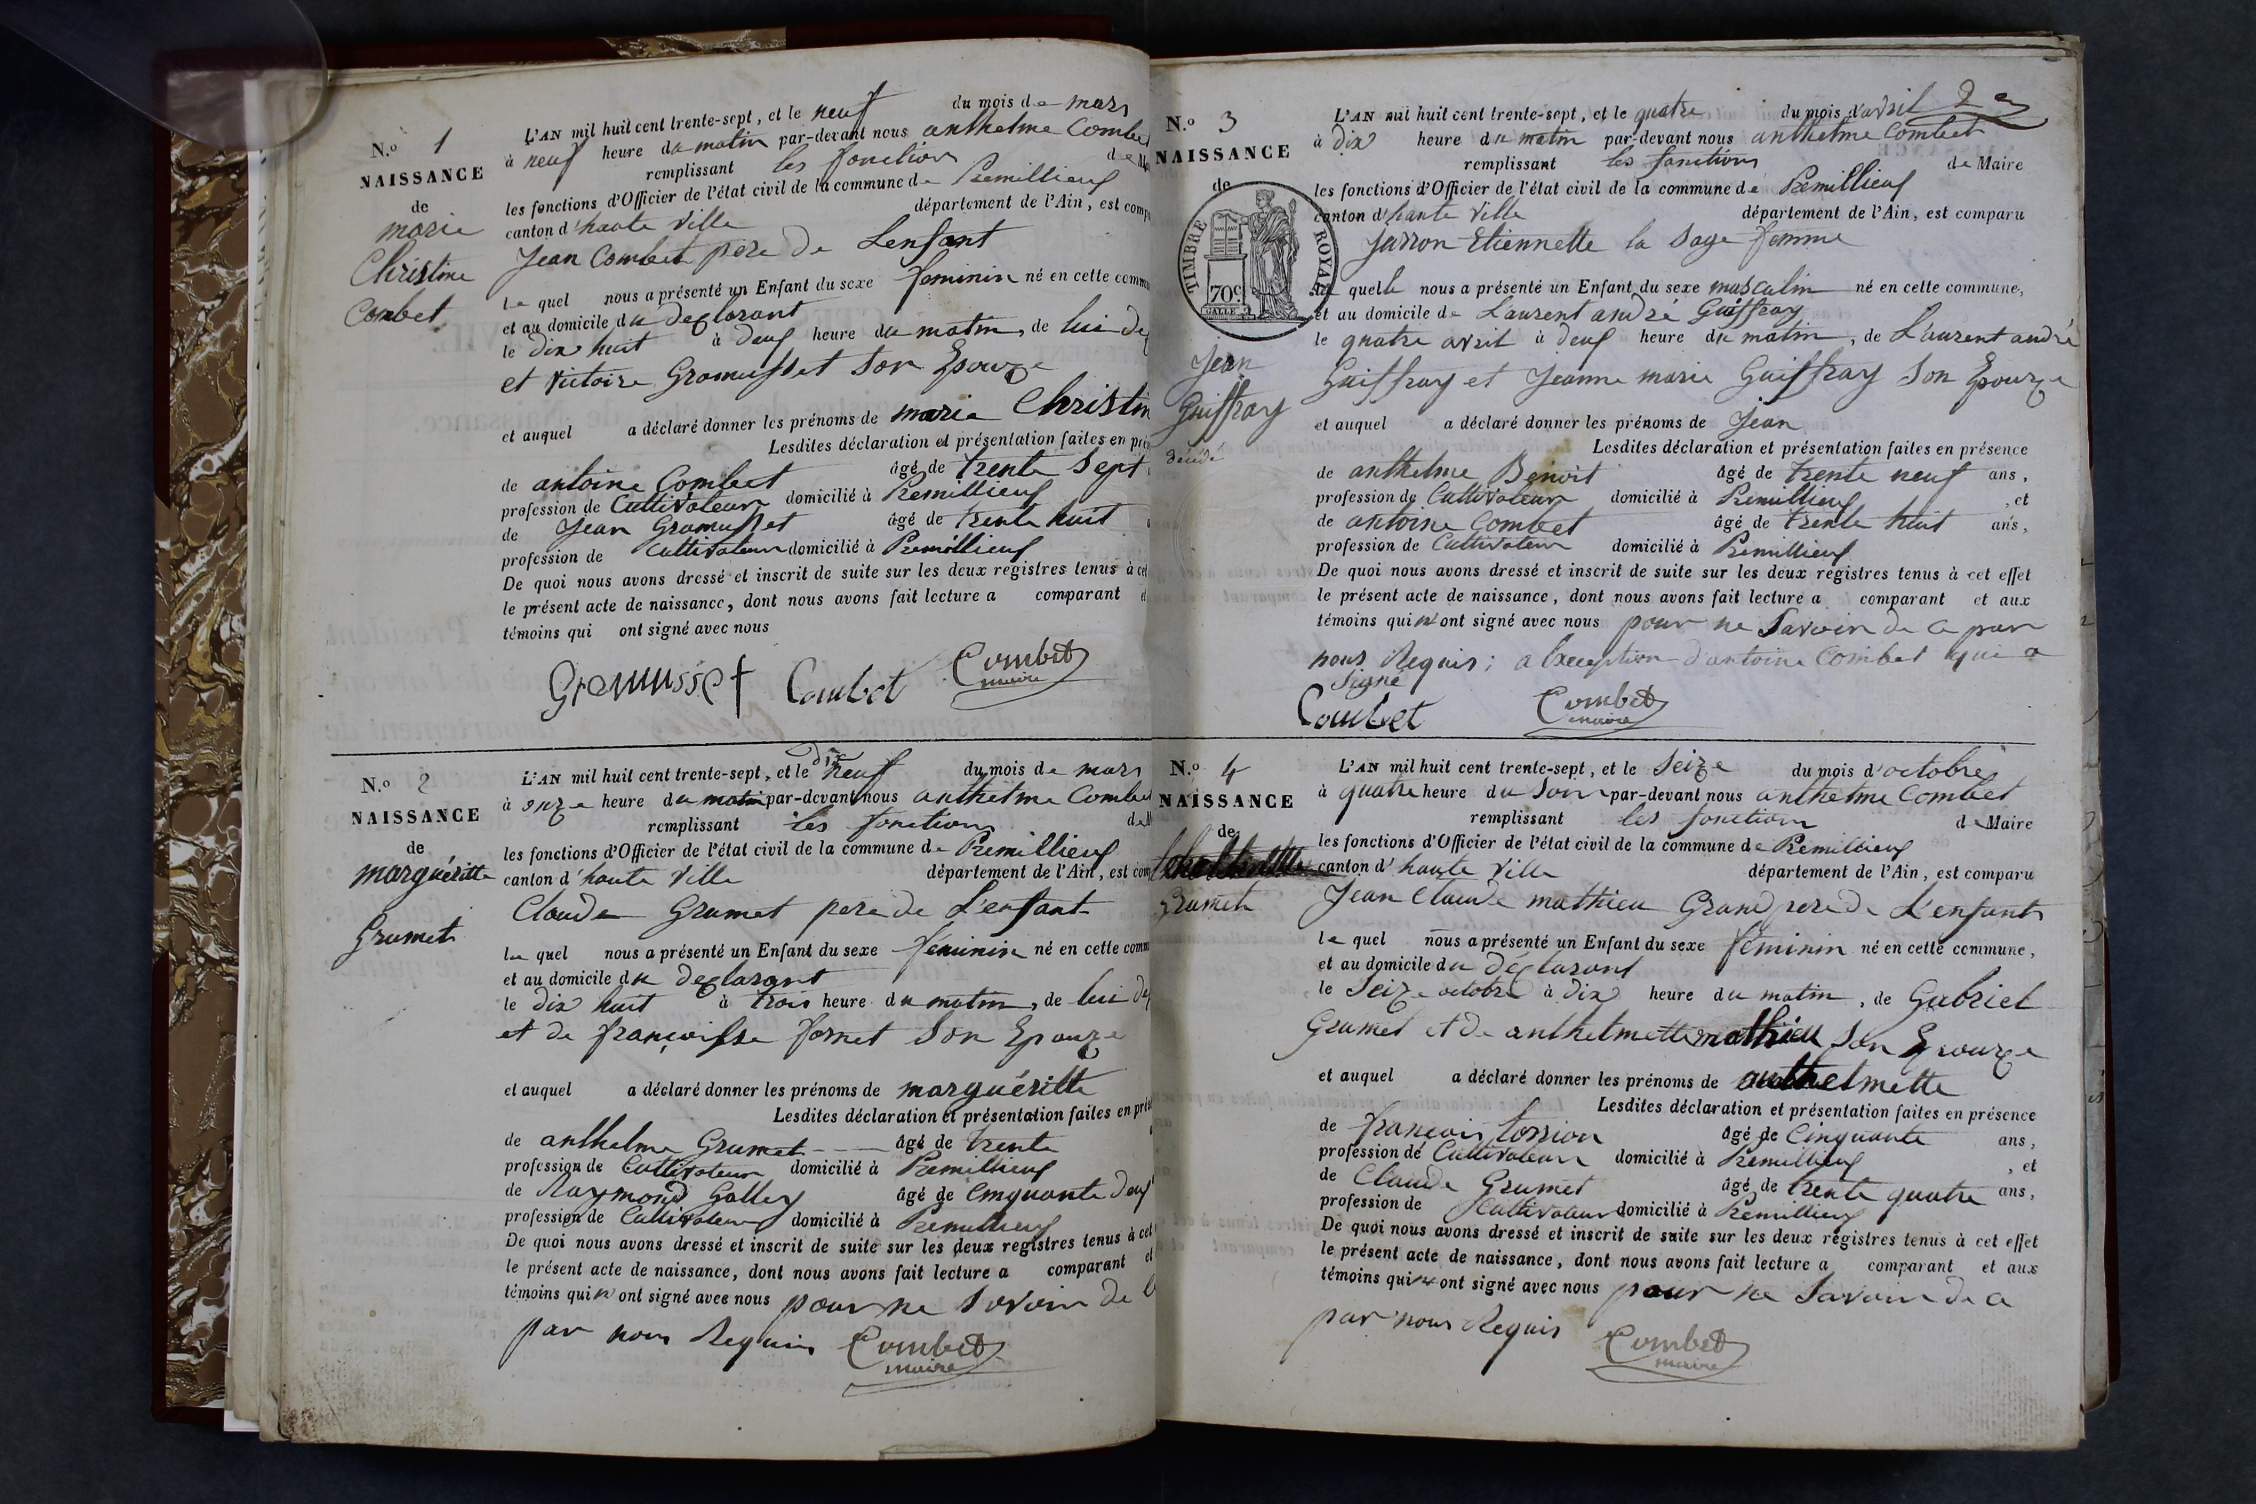 N.º 1
NAISSANCE
de
marie
Christine
Combet
L'AN mil huit cent trente-sept, et le neuf du mois de mars
à neuf heure du matin par-devant nous anthelme Combet
remplissant les fonction de
les fonctions d'Officier de l'état civil de la commune de Premillieux
canton d'haute Ville département de l'Ain, est comp
Jean Combet pere de Lenfant
le quel nous a présenté un Enfant du sexe feminin né en cette comm
et au domicile du declarant
le dix huit à deux heure du matin, de lui
et victoire Gramusset son Epouze
et auquel a déclaré donner les prénoms de marie Christin
Lesdites déclaration et présentation faites en pré
de antoine Combet âgé de trente sept
profession de Cultivateur domicilié à Premillieux
de Jean Gramusset âgé de trente huit
profession de Cultivateur domicilié à Premillieux
De quoi nous avons dressé et inscrit de suite sur les deux registres tenus à cet
le présent acte de naissance, dont nous avons fait lecture a comparant
témoins qui ont signé avec nous
Gramusset Combet Combet
maire
N.º 2
NAISSANCE
de
marguéritte
Grumet
dix
L'AN mil huit cent trente-sept, et le neuf du mois de mars
à onze heure du matin par-devant nous anthelme Combet
remplissant les fonctions de
les fonctions d'Officier de l'état civil de la commune de Premillieux
canton d'haute Ville département de l'Ain, est com
Claude Grumet pere de L'enfant
le quel nous a présenté un Enfant du sexe feminin né en cette comm
et au domicile du declarant
le dix huit à trois heure du matin, de lui
et de françoisse fornet Son Epouze
et auquel a déclaré donner les prénoms de marguéritte
Lesdites déclaration et présentation faites en prés
de anthelme Grumet âgé de trente
profession de Cultivateur domicilié à Premillieux
de Raymond Galley âgé de Cinquante deux
profession de Cultivateur domicilié à Premillieux
De quoi nous avons dressé et inscrit de suite sur les deux registres tenus à cet
le présent acte de naissance, dont nous avons fait lecture a comparant et
témoins qui n' ont signé avec nous pour ne Savoir de
par nous Requis Combet
maire
2
N.º 3
NAISSANCE
de
TIMBRE ROYAL
70c
Jean
Guiffray
décédé
L'AN mil huit cent trente-sept, et le quatre du mois d'avril
à dix heure du matin par-devant nous anthelme Combet
remplissant les fonctions de Maire
les fonctions d'Officier de l'état civil de la commune de Premillieux
canton d'haute Ville département de l'Ain, est comparu
Jarron Etiennette la Sage femme
quelle nous a présenté un Enfant du sexe masculin né en cette commune,
et au domicile de Laurent andré Guiffray
le quatre avril à deux heure du matin, de Laurent andré
Guiffray et Jeanne marie Guiffray Son Epouze
et auquel a déclaré donner les prénoms de Jean
Lesdites déclaration et présentation faites en présence
de anthelme Benoit âgé de trente neuf ans,
profession de Cultivateur domicilié à Premillieux, et
de antoine Combet âgé de trente huit ans,
profession de Cultivateur domicilié à Premillieux
De quoi nous avons dressé et inscrit de suite sur les deux registres tenus à cet effet
le présent acte de naissance, dont nous avons fait lecture a comparant et aux
témoins qui n' ont signé avec nous pour ne Savoir de ce par
nous Requis; a lexception d'antoine Combet qui a
Signé
Combet Combet
maire
N.º 4
NAISSANCE
de
Grumet
L'AN mil huit cent trente-sept, et le Seize du mois d'octobre
à quatre heure du Soir par-devant nous anthelme Combet
remplissant les fonction de Maire
les fonctions d'Officier de l'état civil de la commune de Premillieux
canton d'haute Ville département de l'Ain, est comparu
Jean Claude mathieu Grand pere de L'enfant
le quel nous a présenté un Enfant du sexe féminin né en cette commune,
et au domicile du déclarant
le Seize octobre à dix heure du matin, de Gabriel
Grumet et de anthelmette mathieu Son Epouze
et auquel a déclaré donner les prénoms de anthelmette
Lesdites déclaration et présentation faites en présence
de françois âgé de Cinquante ans,
profession de Cultivateur domicilié à Premillieux, et
de Claude Grumet âgé de trente quatre ans,
profession de Cultivateur domicilié à Premillieux
De quoi nous avons dressé et inscrit de suite sur les deux registres tenus à cet effet
le présent acte de naissance, dont nous avons fait lecture a comparant et aux
témoins qui n' ont signé avec nous pour ne Savoir de ce
par nous Requis Combet
maire